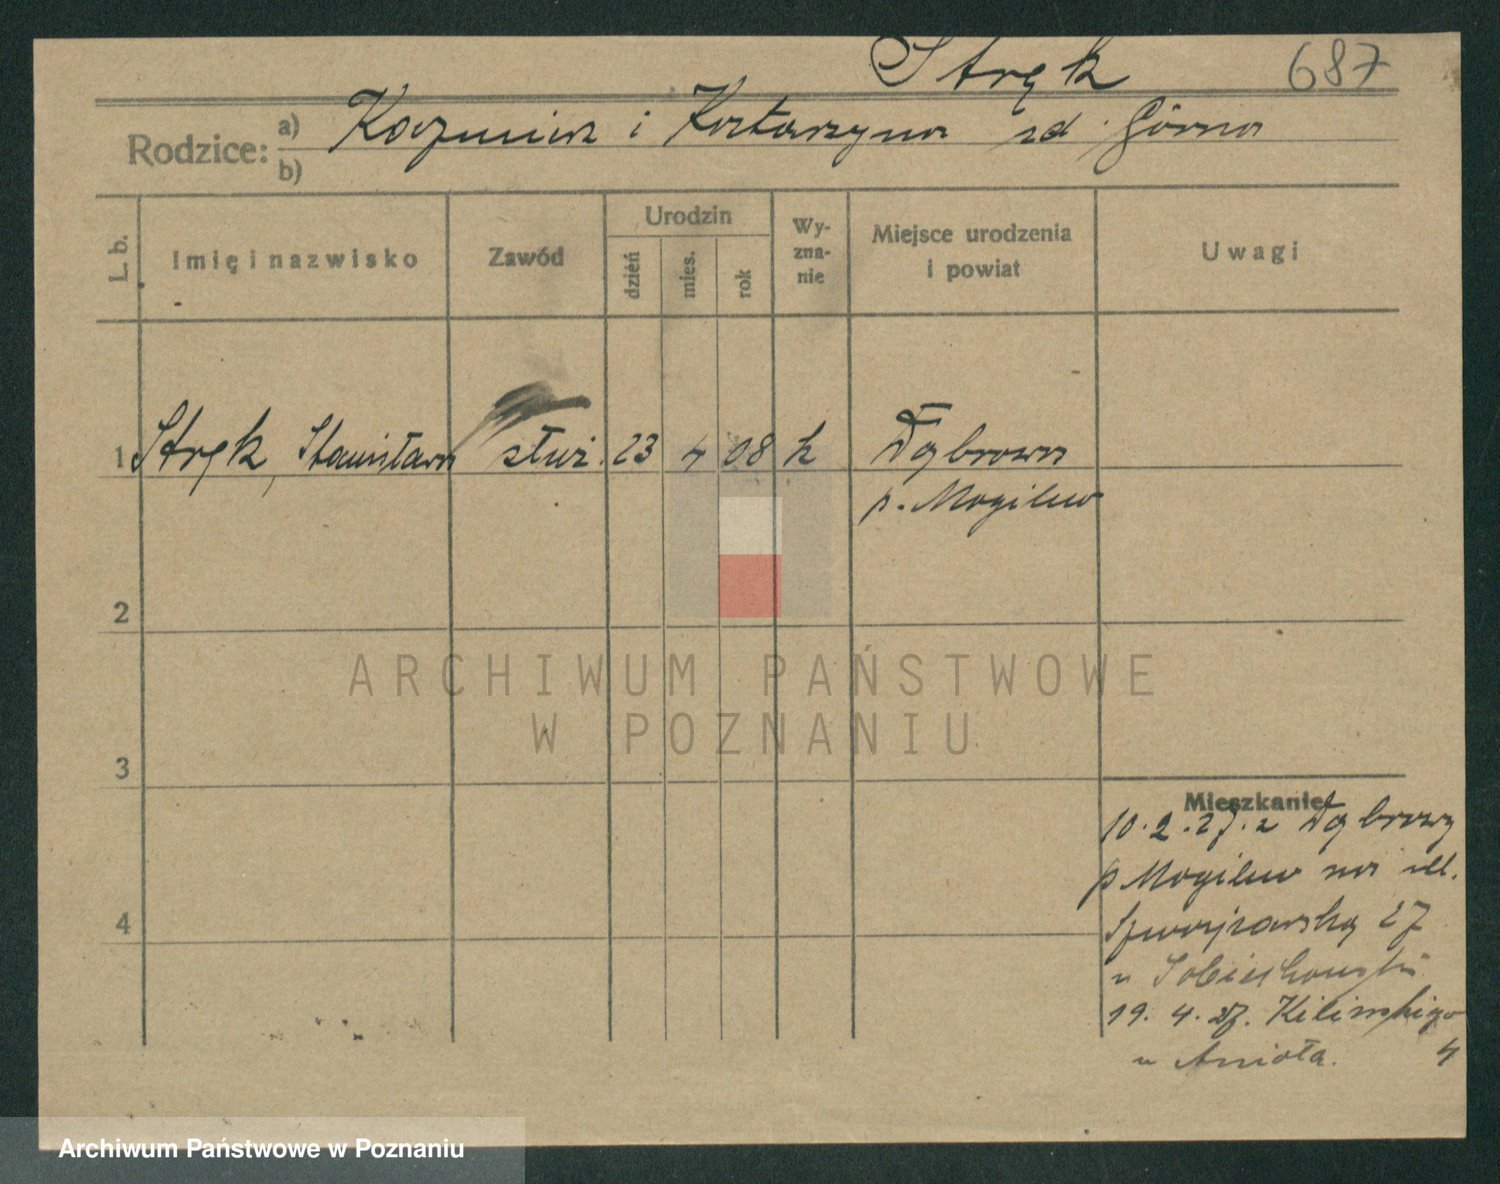 Stręk 687
Rodzice: a) Kazmierz i Katarzyna zd. Górna
b)
L. b. Imię i nazwisko Zawód Urodzin Wy-zna-nie Miejsce urodzenia i powiat Uwagi
dzień mies. rok
1 Stręk, Stanisława służ. 23 4 08 k Dąbrowa
p. Mogilno
2
ARCHIWUM PAŃSTWOWE
W POZNANIU
3
Mieszkanie
10.2.27. z Dąbrowy
p Mogilno na ul.
Szwajcarską 27
u
4
19.4.27. Kilińskiego
4
u Anioła.
Archiwum Państwowe w Poznaniu